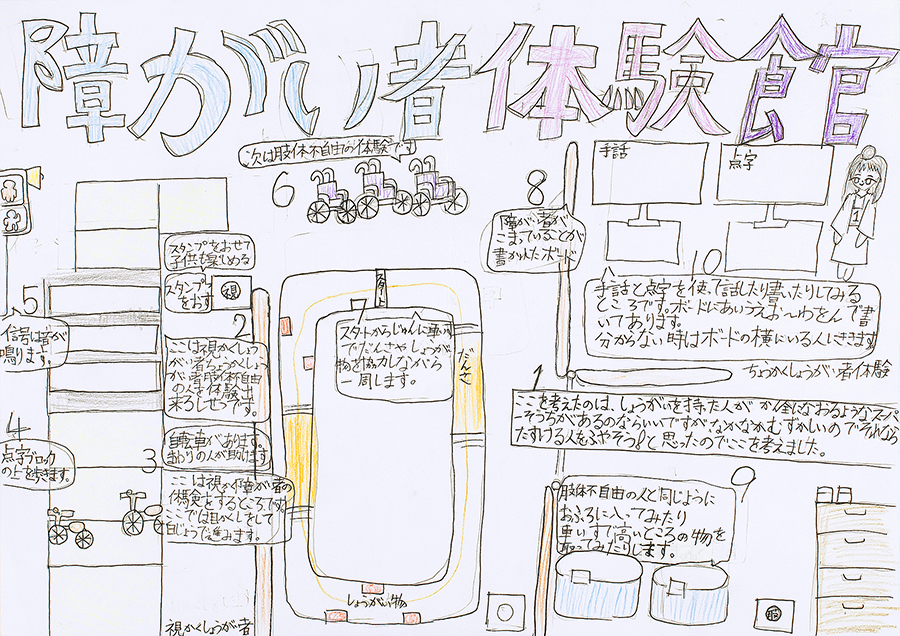 障がい者体験館
次は肢体不自由の体験です
6
8
手話
点字
1
障がい者が
こまっていることが
書かれたボード
10
手話と点字を使い話したり書いたりしてみる
ところです。ボードにあいうえお〜わをんまで書
いてあります。
分からない時はボードの横にいる人にききます
ちょうかくしょうがい者体験
スタンプをおせて
子供も楽しめる
スタンプ
をおす
視
5
信号は音が
鳴ります。
2
ここは視かくしょう
がい者ちょうかくしょう
がい者肢体不自由
の人を体験出
来るしせつです。
スタート
7
スタートからじゅんに車いす
でだんさやしょうがい
物を協力しながら
一周します。
だんさ
1
ここを考えたのは、しょうがいを持った人が かん全になおるようなスーパ
ーそうちがあるのならいいですがなかなかむずかしいのでそれなら
たすける人をふやそう!と思ったのでここを考えました。
4
点字ブロック
の上を歩きます。
自転車があります。
まわりの人が助けます
3
ここは視かく障がい者の
体験をするところです。
ここでは目かくしをして
白じょうで進みます。
9
肢体不自由の人と同じように
おふろに入ってみたり
車いすで高いところの物を
取ってみたりします。
しょうがい物
視かくしょうがい者